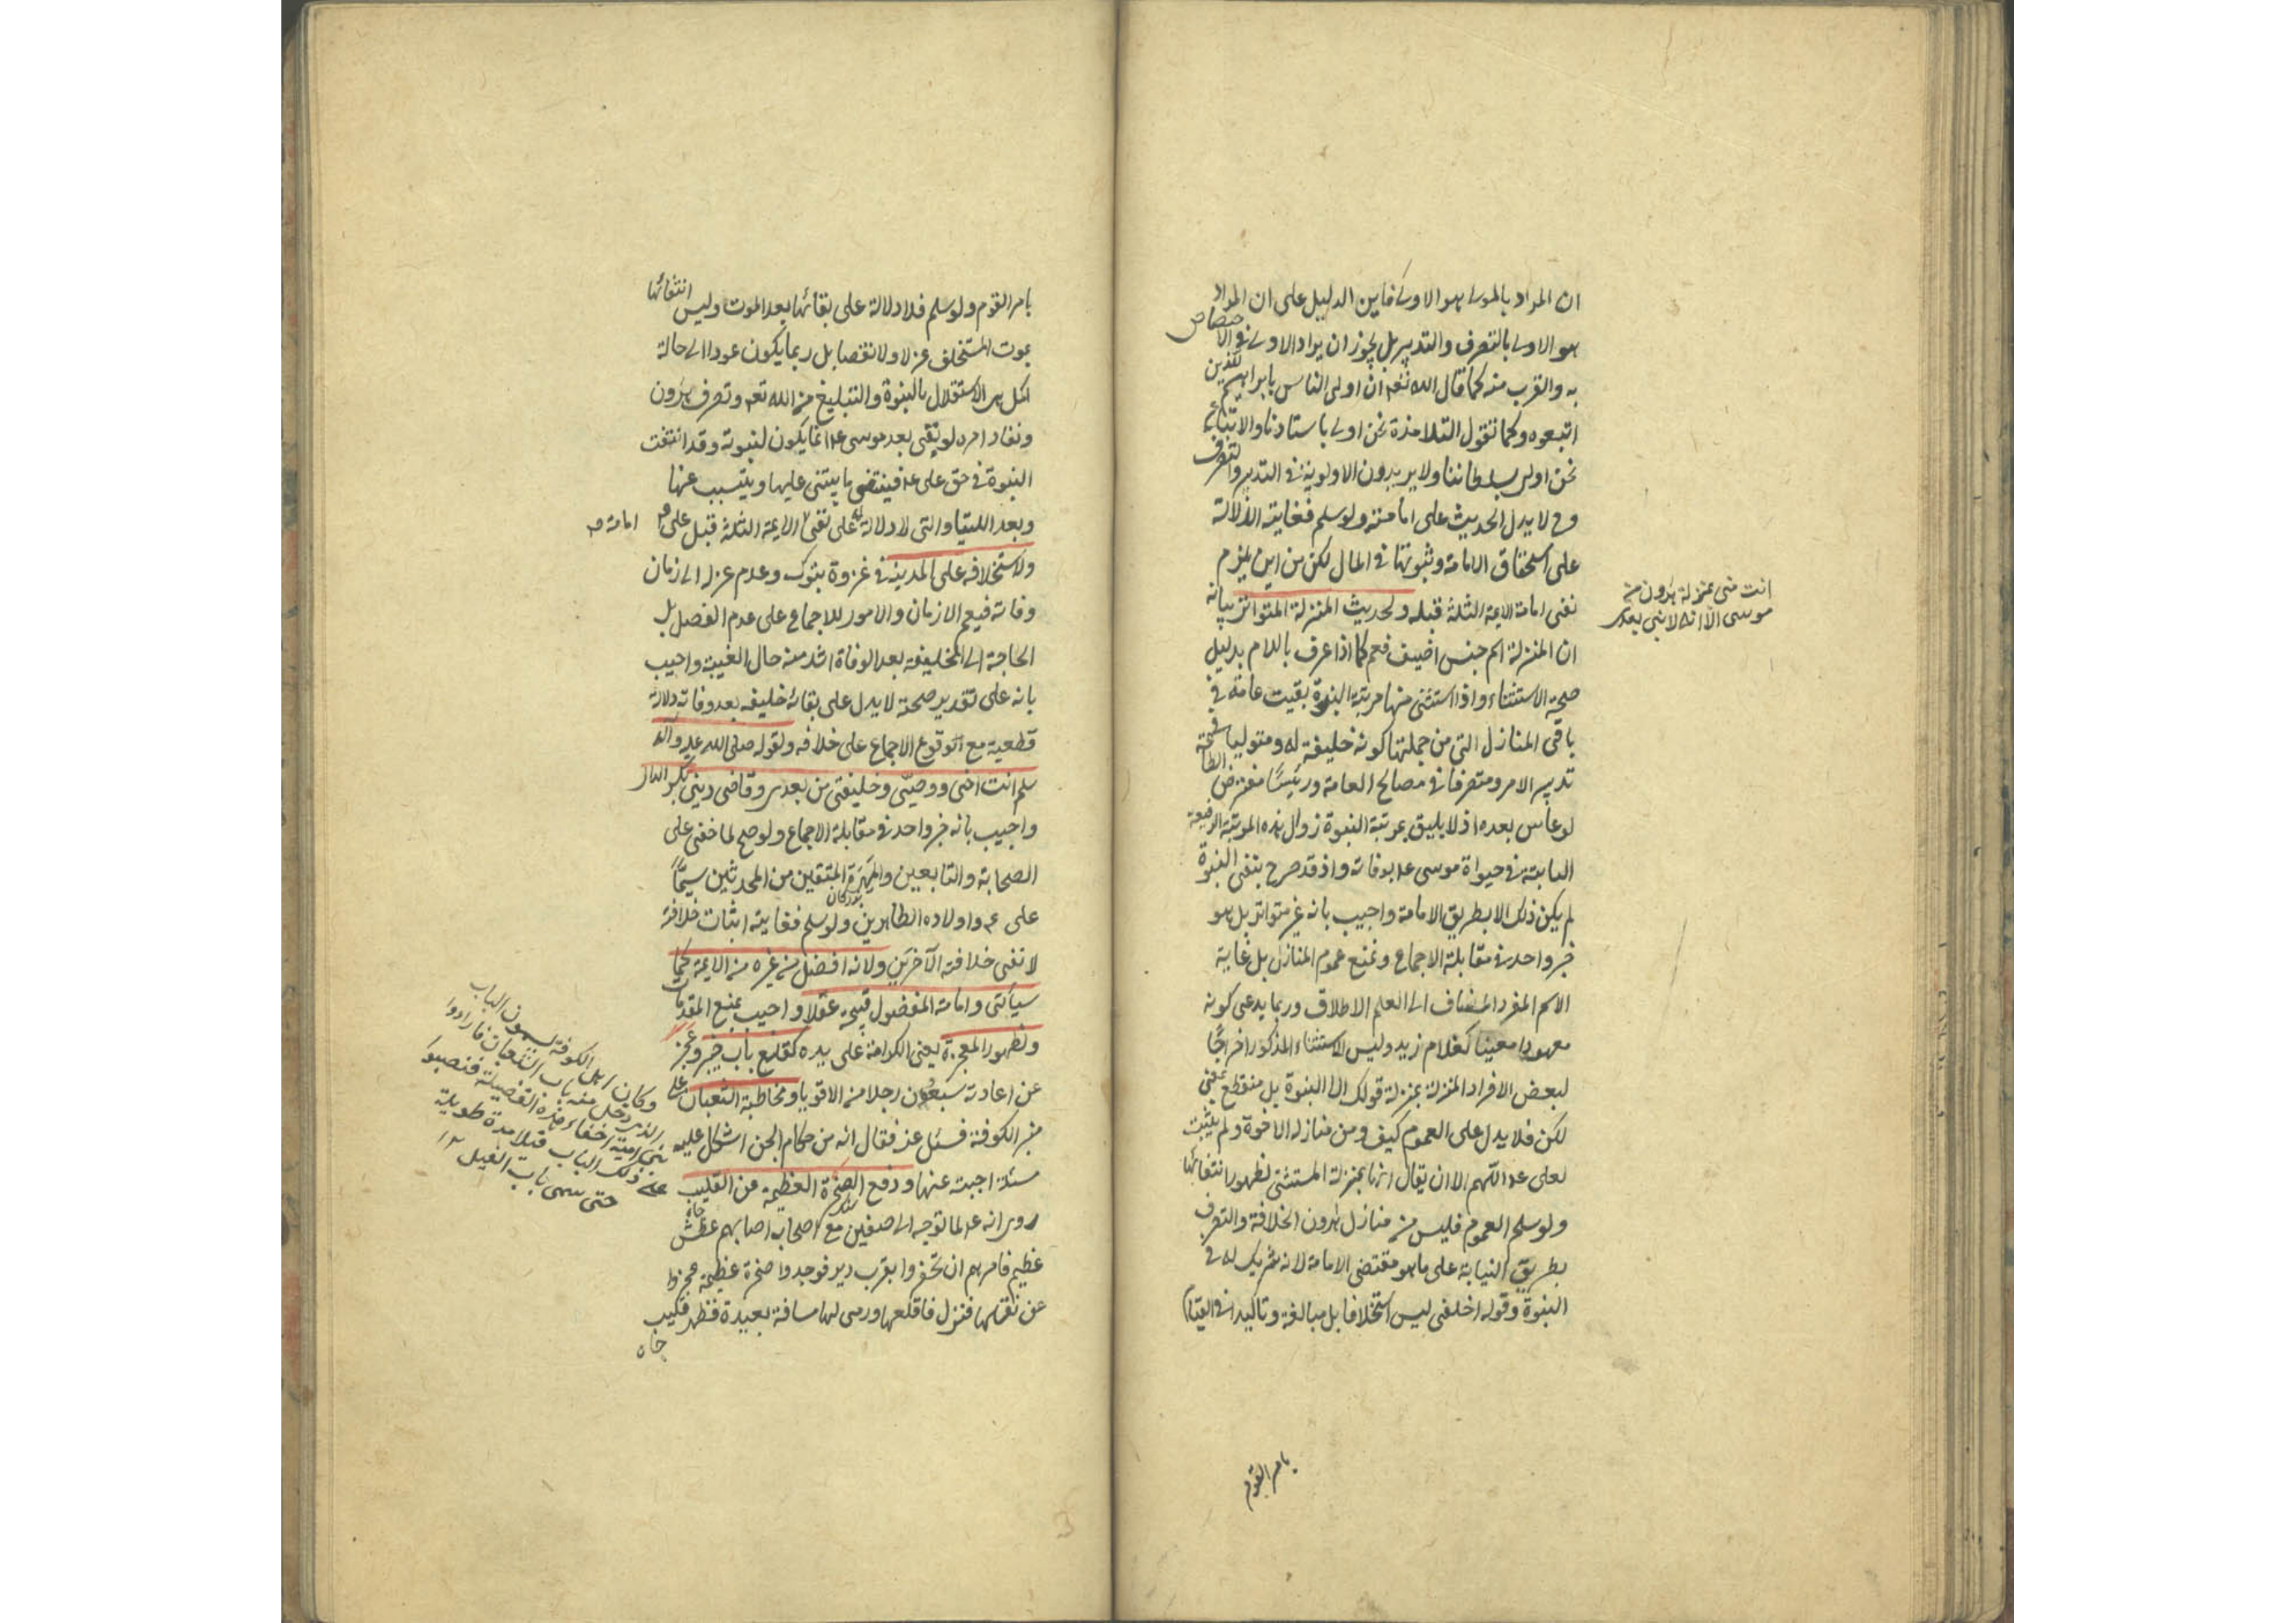 ان المراد بالمولے هو الاولے فاين الدليل على ان المراد
هو الاولے بالتصرف والتدبير بل يجوز ان يراد الاولے فی الاختصاص
به والقرب منه كما قال الله تعم ان اولى الناس بابراهيم للذين
اتبعوه وكما تقول التلامذة نحن اولے باستادنا والاتباع
نحن اولى بسلطاننا ولا يريدون الاولوية فی التدبير والتصرف
وح لا يدل الحديث على امامته ولو سلم فغايته الدلالة
على استحقاق الامامة وثبوتها فی المال لكن من اين يلزم
نفى امامة الايمة الثلثة قبله ولحديث المنزلة المتواتر بيانه
ان المنزلة اسم جنس اضيف فعم كما اذا عرف باللام بدليل
صحة الاستثناء واذا استثنى منها مرتبة النبوة بقيت عامة فی
باقى المنازل التى من جملتها كونه خليفة له ومتوليا فی
تدبير الامر ومتصرفا فی مصالح العامة ورئيسًا مفترض الطاعة
لو عاش بعده اذ لا يليق بمرتبة النبوة زوال هذه المرتبة الرفيعة
الثابتة فی حيواة موسى عم بوفاته واذ قد صرح بنفى النبوة
لم يكن ذلك الا بطريق الامامة واجيب بانه غير متواتر بل هو
خبر واحد فی مقابلة الاجماع ونمنع عموم المنازل بل غاية
الاسم المفرد المضاف الى العلم الاطلاق وربما يدعى كونه
معهودا معينا كغلام زيد وليس الاستثناء المذكور اخراجًا
لبعض الافراد المنزلة بمنزلة قولك الا النبوة بل منقطع بمعنى
لكن فلا يدل على العموم كيف ومن منازله الاخوة ولم يثبت
لعلى عم اللهم الا ان يقال انها بمنزلة المستثنى لظهور انتفائها
ولو سلم العموم فليس من منازل هرون الخلافة والتصرف
بطريق النيابة على ما هو مقتضى الامامة لانه شريك له فی
النبوة وقوله اخلفنى ليس استخلافا بل مبالغة وتاكيدا فی القيام
بامر القوم
انت منى بمنزلة هرون من
موسى الا انه لا نبى بعدى
بامر القوم ولو سلم فلا دلالة على بقائها بعد الموت وليس انتفائها
بموت المستخلف عزلا ولا نقصا بل ربما يكون عودا الى حالة
اكمل هى الاستقلال بالنبوة والتبليغ من الله تعم وتصرف هرون
ونفاد امره لو بقى بعد موسى عم انما يكون لنبوته وقد انتفت
النبوة فی حق على عم فينتفى ما يبتنى عليها ويتسبب عنها
وبعد اللتيا والتى لا دلالة له على نفى الايمة الثلثة قبل على عم
امامة صح
ولاستخلافه على المدينة فی غزوة تبوك وعدم عزله الى زمان
وفاته فيعم الازمان والامور للاجماع على عدم الفصل بل
الحاجة الى الخليفة بعد الوفاة اشد منه حال الغيبة واجيب
بانه على تقدير صحته لا يدل على بقائه خليفه بعد وفاته دلالة
قطعية مع وقوع الاجماع على خلافه ولقوله صلى الله عليه وآله
سلم انت اخى ووصيى وخليفتى من بعدى وقاضى دينى بكسر الدال
واجيب بانه خبر واحد فی مقابلة الاجماع ولو صح لما خفى على
الصحابة والتابعين والمهرة المتقنين من المحدثين سيمًا
على عم واولاده الطاهرين ولو سلم فغايته اثبات خلافة
لا نفى خلافة الآخرين ولانه افضل من غيره من الايمة كما
سيأتى وامامة المفضول قبيحة عقلا واجيب بمنع المقدمات
ولظهور المعجزة يعنى الكرامة على يده كقلع باب خيبر وعجز
عن اعادته سبعون رجلا من الاقويا ومخاطبة الثعبان على
منبر الكوفة فسئل عنه فقال انه من حكام الجن اشكل عليه
مسئلة اجبته عنها ورفع الصخرة العظيمة عن القليب
روى انه عم لما توجه الى صفين مع اصحابه اصابهم عطش
عظيم فامرهم ان تحفروا بقرب دير فوجدوا صخرة عظيمة عجزوا
عن نقلها فنزل فاقلعها ورمى لها مسافة بعيدة فظهر قليب
چاه
وكان اهل الكوفة يسمون الباب
الذى دخل منه باب الثعبان فارادوا
بنى امية اخفاء هذه الفضيلة فنصبوا
على ذلك الباب فيلا مدة طويلة
حتى سمى باب الفيل ١٢